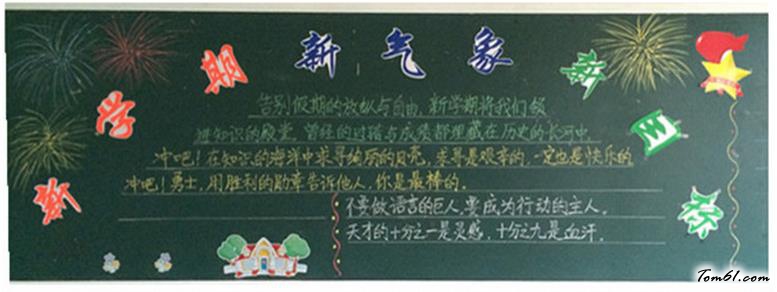 新学期 新气象 新目标
告别假期的放纵与自由,新学期将我们领
进知识的殿堂,曾经的过错与成绩都埋藏在历史的长河中
冲吧!在知识的海洋中求寻绚丽的月亮,求寻是艰辛的,一定也是快乐的
冲吧!勇士,用胜利的勋章告诉他人,你是最棒的。
不要做语言的巨人,要成为行动的主人。
天才的十分之一是灵感,十分之九是血汗。
Tom61.com